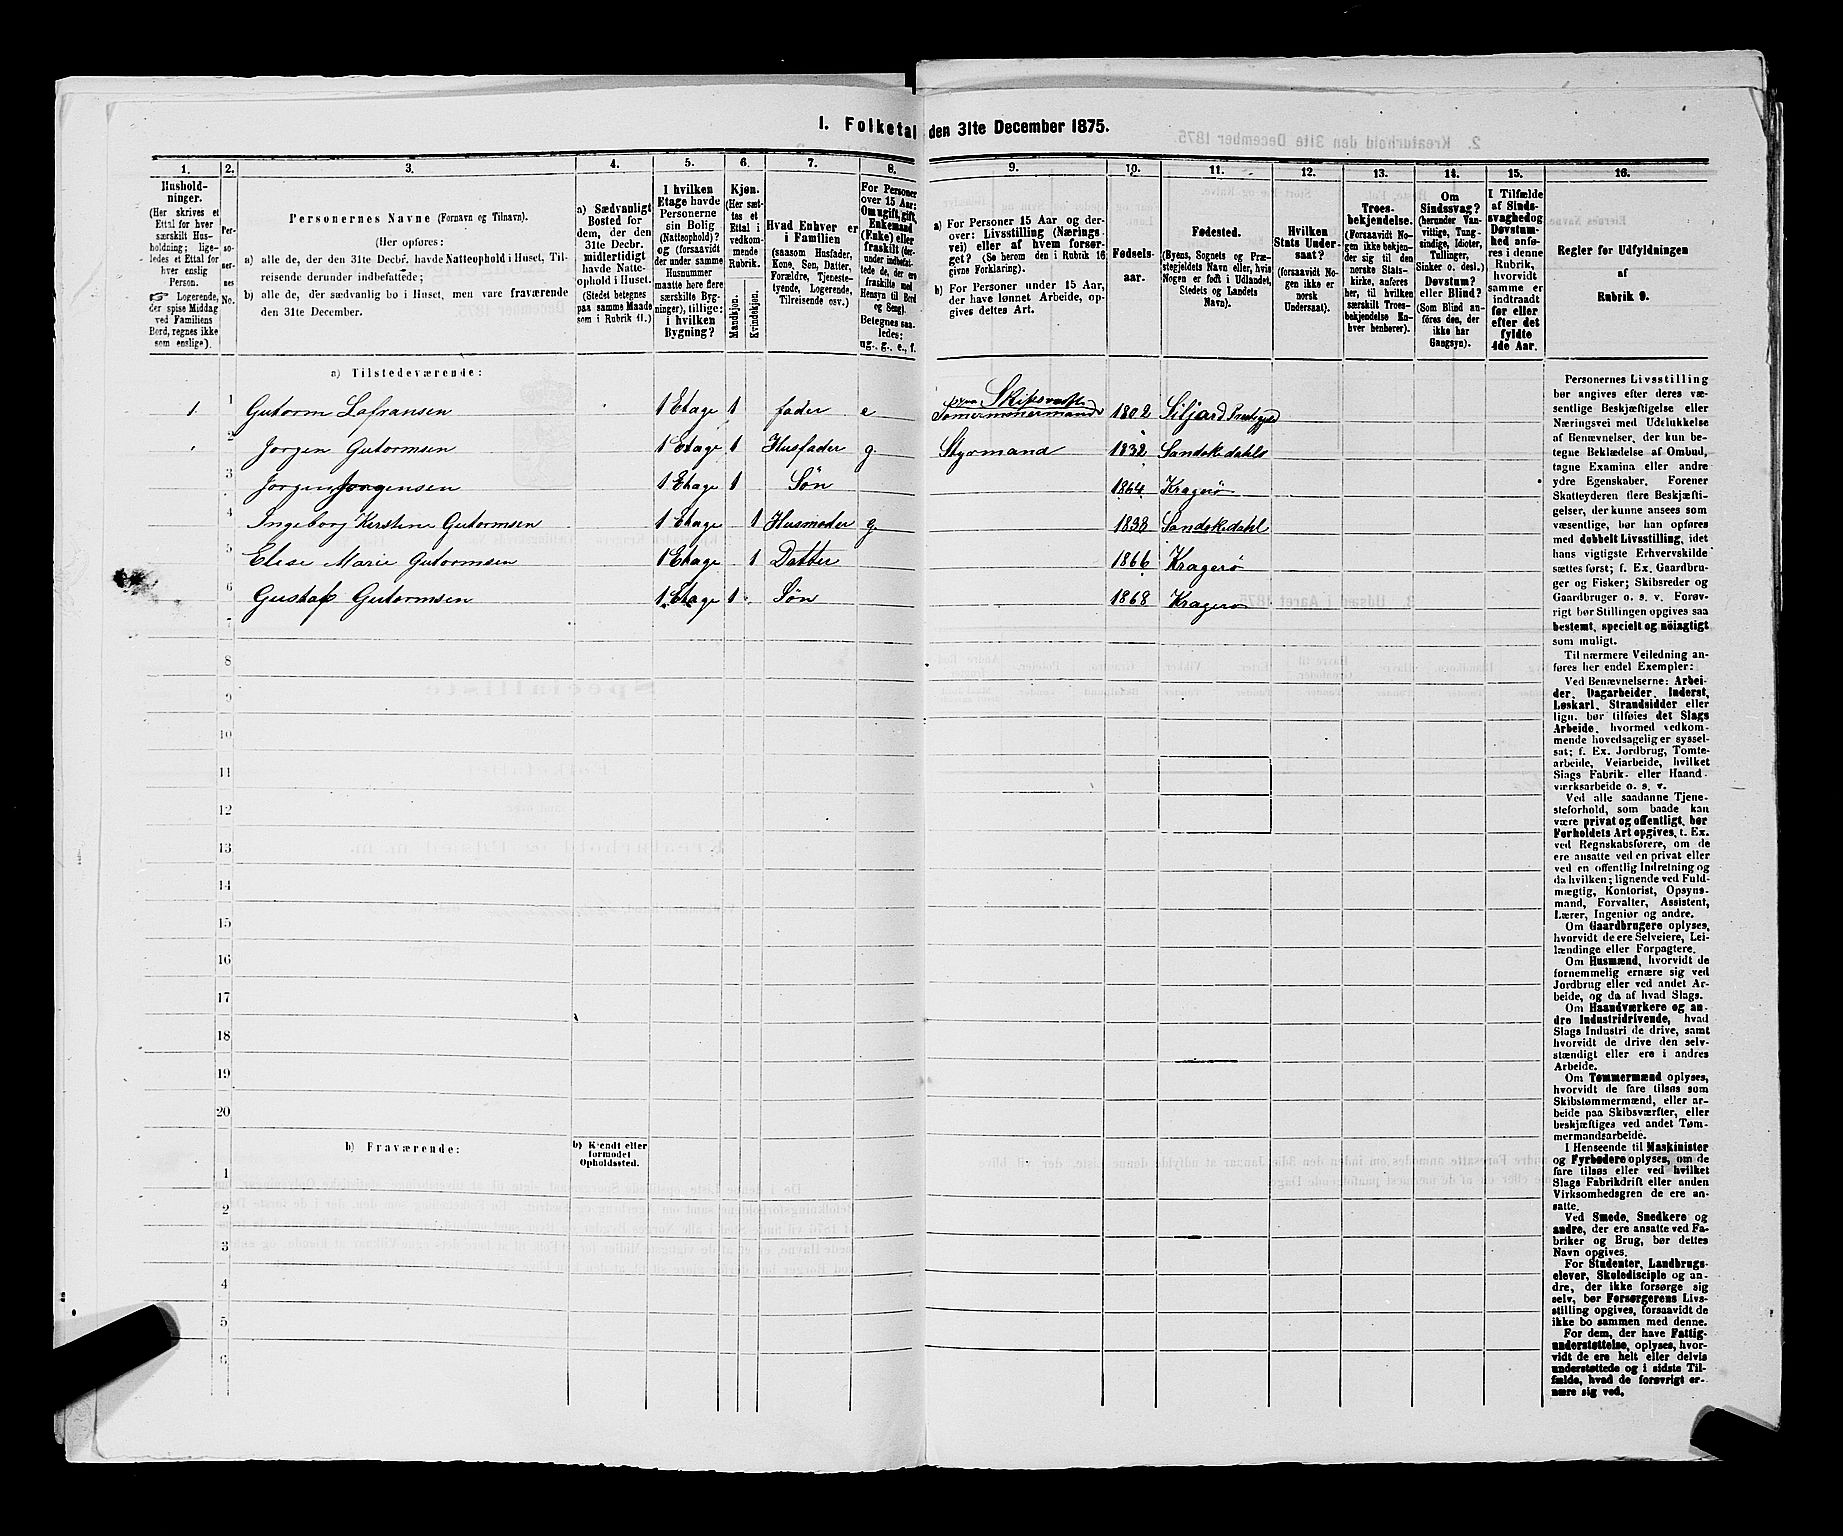 1. Folketal den 31te December 1875.
1. 2. 3. 4. 5. 6. 7. 8. 9. 10. 11. 12. 13. 14. 15. 16.
Hushold-
ninger.
(Her skrives et
Ettal for hver
særskilt Hus-
holdning; lige-
ledes et Ettal for
hver enslig
Person.
☞ Logerende,
der spise Middag
ved Familiens
Bord, regnes ikke
som enslige).
Per-
so-
ner-
nes
No.
Personernes Navne (Fornavn og Tilnavn).
(Her opføres:
a) alle de, der den 31te Decbr. havde Natteophold i Huset, Til-
reisende derunder indbefattede;
b) alle de, der sædvanlig bo i Huset, men vare fraværende
den 31te December.
a) Sædvanligt
Bosted for
dem, der den
31te Decbr.
midlertidigt
havde Natte-
ophold i Huset.
(Stedet betegnes
paa samme Maade
som i Rubrik 11.)
I hvilken
Etage havde
Personerne
sin Bolig
(Natteophold)?
og (forsaavidt
der under samme
Husnummer
maatte høre flere
særskilte Byg-
ninger), tillige:
i hvilken
Bygning?
Kjøn.
(Her sæt-
tes et
Ettal i
vedkom-
mende
Rubrik.
Mandkjøn.
Kvindekjøn.
Hvad Enhver er
i Familien
(saasom Husfader,
Kone, Søn, Datter,
Forældre, Tjeneste-
tyende, Logerende,
Tilreisende osv.)
For Personer
over 15 Aar:
Om ugift, gift,
Enkemand
(Enke) eller
fraskilt (der-
under indbefat-
tede de, der ere
fraskilte med
Hensyn til Bord
og Seng).
Betegnes saa-
ledes:
ug., g., e., f.
a) For Personer 15 Aar og der-
over: Livsstilling (Nærings-
vei) eller af hvem forsør-
get? (Se herom den i Rubrik 16
givne Forklaring).
b) For Personer under 15 Aar,
der have lønnet Arbeide, op-
gives dettes Art.
Fødsels-
aar.
Fødested.
(Byens, Sognets og Præ-
stegjeldets Navn eller, hvis
Nogen er født i Udlandet,
Stedets og Landets
Navn).
Hvilken
Stats Under-
saat?
(forsaavidt No-
gen ikke er
norsk
Undersaat).
Troes-
bekjendelse.
(Forsaavidt No-
gen ikke bekjen-
der sig til den
norske Stats-
kirke, anføres
her, til hvilken
særskilt Troes-
bekjendelse En-
hver henhører).
Om
Sindssvag?
(herunder Van-
vittige, Tung-
sindige, Idioter,
Tullinger,
Sinker o. desl.)
Døvstum?
eller Blind?
(Som Blind an-
føres den, der
ikke har
Gangsyn).
I Tilfælde
af Sinds-
svaghed og
Døvstum-
hed anfø-
res i denne
Rubrik,
hvorvidt
samme er
indtraadt
før eller
efter det
fyldte
4de Aar.
Regler for Udfyldningen
af
Rubrik 9.
a) Tilstedeværende:
1. 1 Gutorm Lafransen 1 Etage 1 fader e Skibsværft Tømermmermand 1802 Siljord
2 Jorgen Gutormsen 1 Etage 1 Husfader g Styrmand 1832 Sandøkedahls
3 Jorgen Jorgensen 1 Etage 1 Søn 1864 Kragerø
4 Ingeborg Kerstine Gutormsen 1 Etage 1 Husmoder g 1838 Sandøkedahl
5 Elise Marie Gutormsen 1 Etage 1 Datter 1866 Kragerø
6 Gustaf Gutormsen 1 Etage 1 Søn 1868 Kragerø
7
8
9
10
11
12
13
14
15
16
17
18
19
20
b) Fraværende: b) Kjendt eller
formodet
Opholdssted.
1
2
3
4
5
6
Personernes Livsstilling
bør angives efter deres væ-
sentlige Beskjæftigelse eller
Næringsvei med Udelukkelse
af Benævnelser, der kun be-
tegne Beklædelse af Ombud,
tagne Examina eller andre
ydre Egenskaber. Forener
Skatteyderen flere Beskjæfti-
gelser, der kunne ansees som
væsentlige, bør han opføres
med dobbelt Livsstilling, idet
hans vigtigste Erhvervskilde
sættes først; f. Ex. Gaardbru-
ger og Fisker; Skibsreder og
Gaardbruger o. s. v. Forøv-
rigt bør Stillingen opgives saa
bestemt, specielt og nöiagtigt
som muligt.
Til nærmere Veiledning an-
føres her endel Exempler:
Ved Benævnelserne: Arbei-
der, Dagarbeider, Inderst,
Løskarl, Strandsidder eller
lign. bør tilføies det Slags
Arbeide, hvormed vedkom-
mende hovedsagelig er syssel-
sat; f. Ex. Jordbrug, Tomte-
arbeide, Veiarbeide, hvilket
Slags Fabrik- eller Haand-
værksarbeide o. s. v.
Ved alle saadanne Tjene-
steforhold, som baade kan
være privat og offentligt, bør
Forholdets Art opgives, t. Ex.
ved Regnskabsførere, om de
ere ansatte ved en privat eller
ved en offentlig Indretning og
da hvilken; lignende ved Fuld-
mægtig, Kontorist, Opsyns-
mand, Forvalter, Assistent,
Lærer, Ingeniør og andre.
Om Gaardbrugere oplyses,
hvorvidt de ere Selveiere, Lei-
lændinge eller Forpagtere.
Om Husmænd, hvorvidt de
fornemmelig ernære sig ved
Jordbrug eller ved andet Ar-
beide, og da af hvad Slags.
Om Haandværkere og an-
dre Industridrivende, hvad
Slags Industri de drive, samt
hvorvidt de drive den selv-
stændigt eller ere i andres
Arbeide.
Om Tømmermænd oplyses,
hvorvidt de fare tilsøs som
Skibstømmermænd, eller ar-
beide paa Skibsværfter, eller
beskjæftiges ved andet Tøm-
mermandsarbeide.
I Henseende til Maskinister
og Fyrbødere oplyses, om de
fare tilsøs eller ved hvilket
Slags Fabrikdrift eller anden
Virksomhedsgren de ere an-
satte.
Ved Smede, Snedkere og
andre, der ere ansatte ved Fa-
briker og Brug, bør dettes
Navn opgives.
For Studenter, Landbrugs-
elever, Skoledisciple og an-
dre, der ikke forsørge sig
selv, bør Forsørgerens Livs-
stilling opgives, forsaavidt de
ikke bo sammen med denne.
For dem, der have Fattig-
understøttelse, oplyses, hvor-
vidt de ere helt eller delvis
understøttede og i sidste Til-
fælde, hvad de forøvrigt er-
nære sig ved.